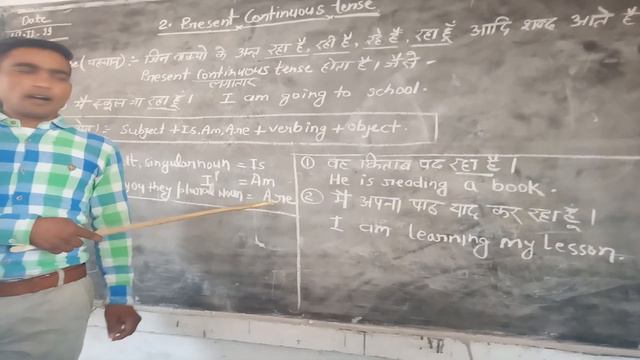 Date
2. Present Continuous tense
(पहचान) :- जिन वाक्यो के अन्त रहा है, रही है, रहे है, रहा हूँ आदि शब्द आते है
Present Continuous tense होता है, जैसे -
लगातार
मैं स्कूल जा रहा हूँ। I am going to school.
Subject + Is, Am, Are + verbing + object.
It, singular noun = Is
I = Am
you they plural noun = Are
① वह किताब पढ़ रहा है।
He is reading a book.
② मैं अपना पाठ याद कर रहा हूँ।
I am learning my lesson.